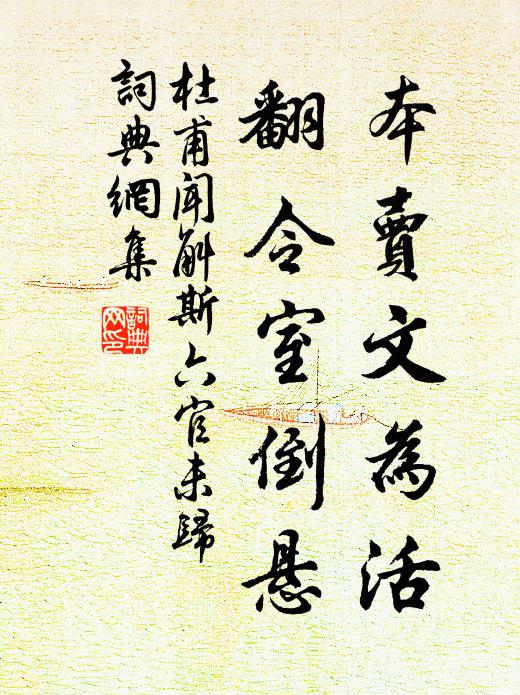 本賣文為活
翻令室倒懸
杜甫聞斛斯六官未歸
詞典網集
詞典网印